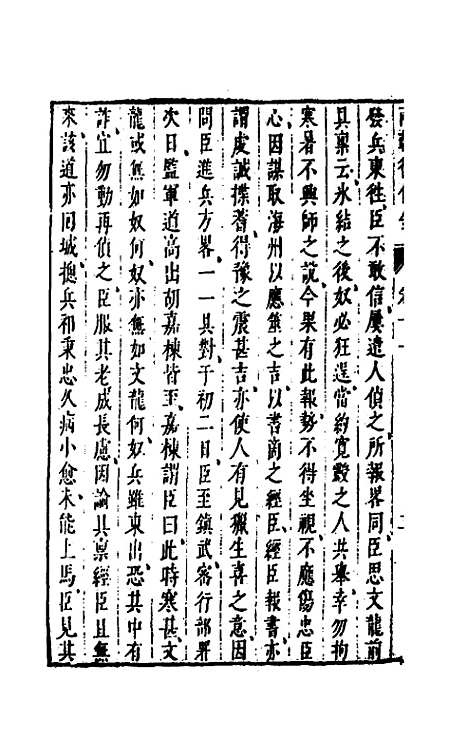 發兵東徃臣不敢信屢遣人偵之所報畧同臣思文龍前
具稟云氷結之後奴必狂逞當約寛毅之人共舉幸勿拘
寒暑不興師之說今果有此報勢不得坐視不應傷忠臣
心因謀取海州以應筮之吉以書商之經臣經臣報書亦
謂虔誠揲蓍得豫之震甚吉亦使人有見獵生喜之意因
問臣進兵方畧一一具對于初二日臣至鎮武審行部署
次日監軍道高出胡嘉棟皆至嘉棟謂臣曰此時寒甚文
龍或無如奴何奴亦無如文龍何奴兵雖東出恐其中有
詐宜勿動再偵之臣服其老成長慮因諭其稟經臣且無
來該道亦同城摠兵祁秉忠久病小愈未能上馬臣見其